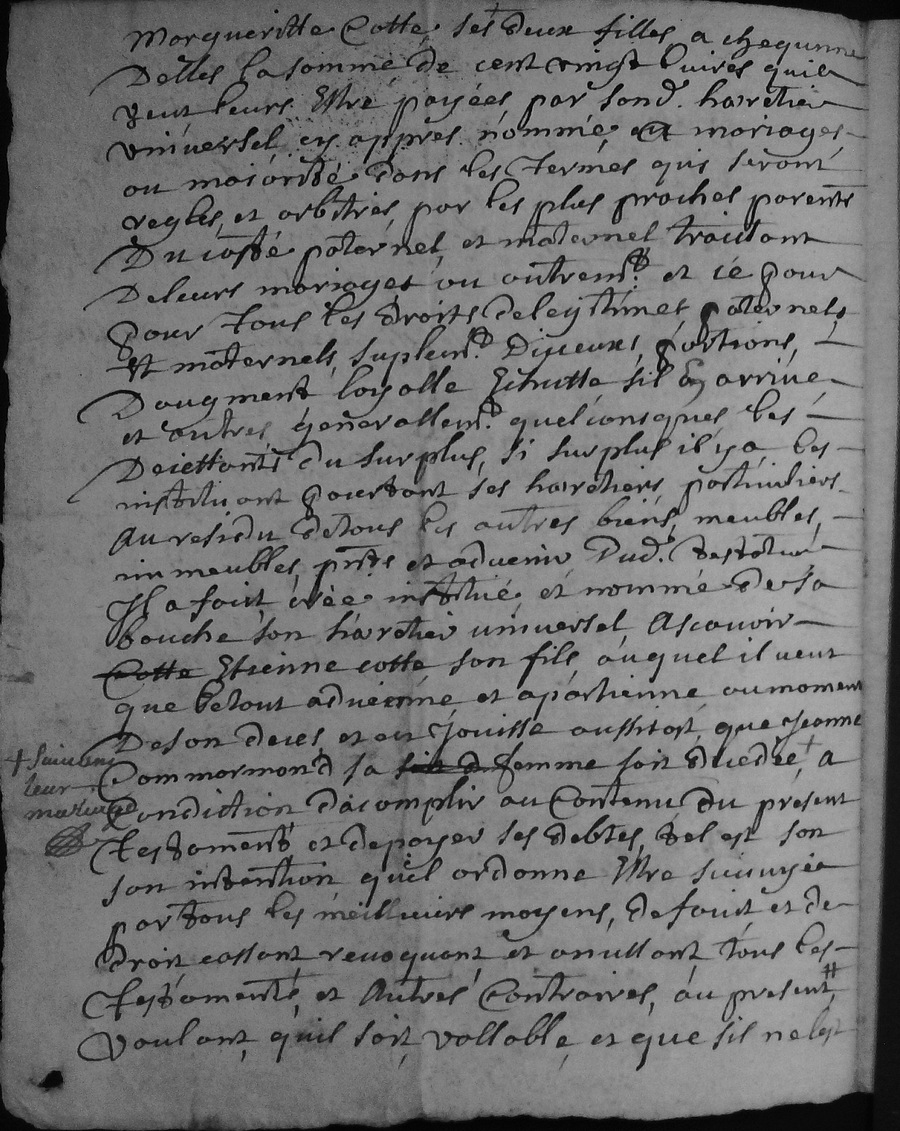 Margueritte Cotte, ses deux filles a chequnne
Delles la somme de cent vingt livres quil
veut leurs Estre payées par sond. haretier
universel cy appres nommé, en mariages
ou maiorité dans les termes quis seront
regles, et arbitres, par les plus proches parents
Du costé paternel, et maternel traittant
De leurs mariages ou autremt. et ce pour
pour tous les droits de legitimes paternels
Et maternels, suplemt. Disceuxs, portions,
Daugment loyalle Echutte sil Ey arrive
et autres generallemt. quelconsques les
Deiettants du surplus, si surplus il y a les
instituant pourtant ses haretiers particuliers
Au residu de tous les autres biens, meubles,
immeubles, pnts et advenir Dud. testateur
Il a fait créé institué, et nommé de sa
bouche son haretier universel Ascavoir
Cotte Etienne cotte son fils, auquel il veut
que le tout advienne et apartienne au moment
De son deces, et en Jouisse aussitost, que Jeanne
Commarmond sa femme soit decedée, + a
+ suivant
leur
mariage
Condiction dacomplir au Contenu du present
testament et de payer ses debtes, tel est son
son intention quil ordonne Estre suivuyée
par tous les meilleurs moyens, de fait et de
droit cassant revoquant et anullant tous les
testaments, et Autres Contraires, au present #
Voulant, quil soit, vallable, et que sil ne lest